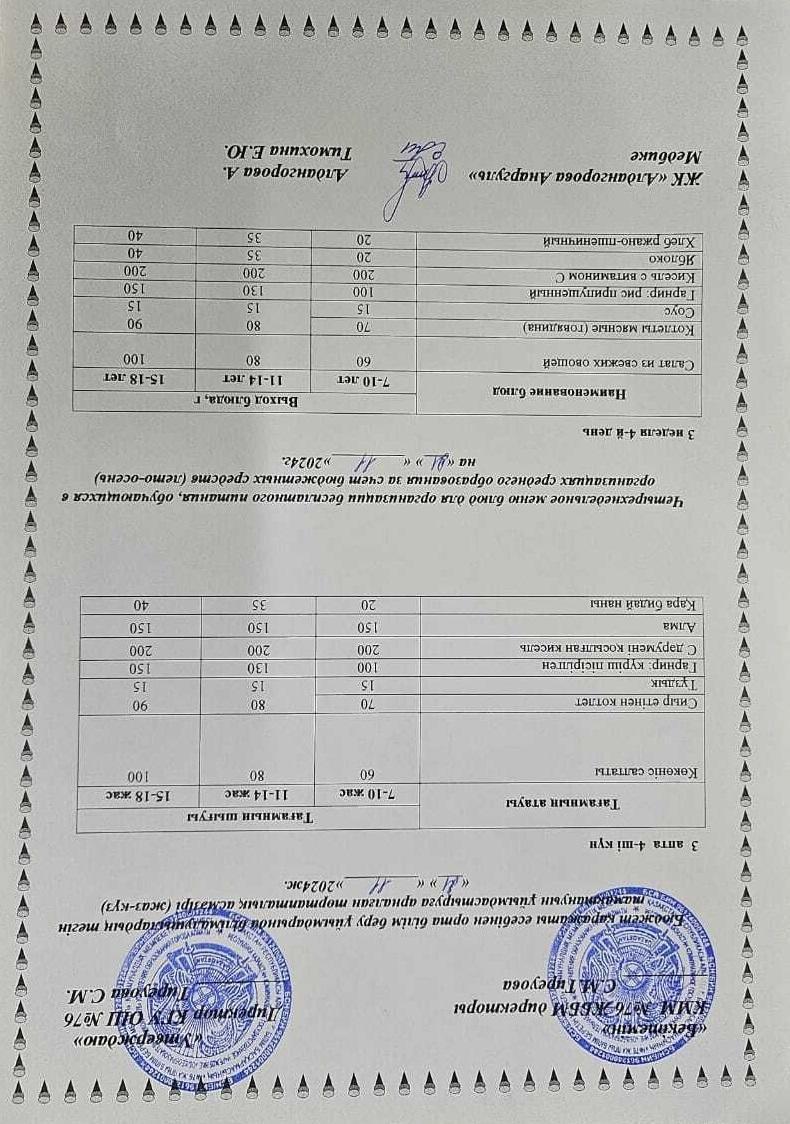 «Бекітемін»
КММ №76 ЖББМ директоры
С.М.Тиреуова
«Утверждаю»
Директор КГУ ОШ №76
Тиреуова С.М.
Бюджет қаражаты есебінен орта білім беру ұйымдарында білімалушылардың тегін
тамақтануын ұйымдастыруға арналған төртапталық асмәзірі (жаз-күз)
«21» « 11 »2024ж.
3 апта 4-ші күн
Тағамның атауы Тағамның шығуы
7-10 жас 11-14 жас 15-18 жас
Көкөніс салтаты 60 80 100
Сиыр етінен котлет 70 80 90
Тұздық 15 15 15
Гарнир: күріш пісірілген 100 130 150
С дәрумені қосылған кисель 200 200 200
Алма 150 150 150
Қара бидай наны 20 35 40
Четырехнедельное меню блюд для организации бесплатного питания, обучающихся в
организациях среднего образования за счет бюджетных средств (лето-осень)
на «21» « 11 »2024г.
3 неделя 4-й день
Наименование блюд Выход блюда, г
7-10 лет 11-14 лет 15-18 лет
Салат из свежих овощей 60 80 100
Котлеты мясные (говядина) 70 80 90
Соус 15 15 15
Гарнир: рис припущенный 100 130 150
Кисель с витамином С 200 200 200
Яблоко 20 35 40
Хлеб ржано-пшеничный 20 35 40
ЖК «Алдангорова Анаргуль» Алдангорова А.
Медбике Тимохина Е.Ю.